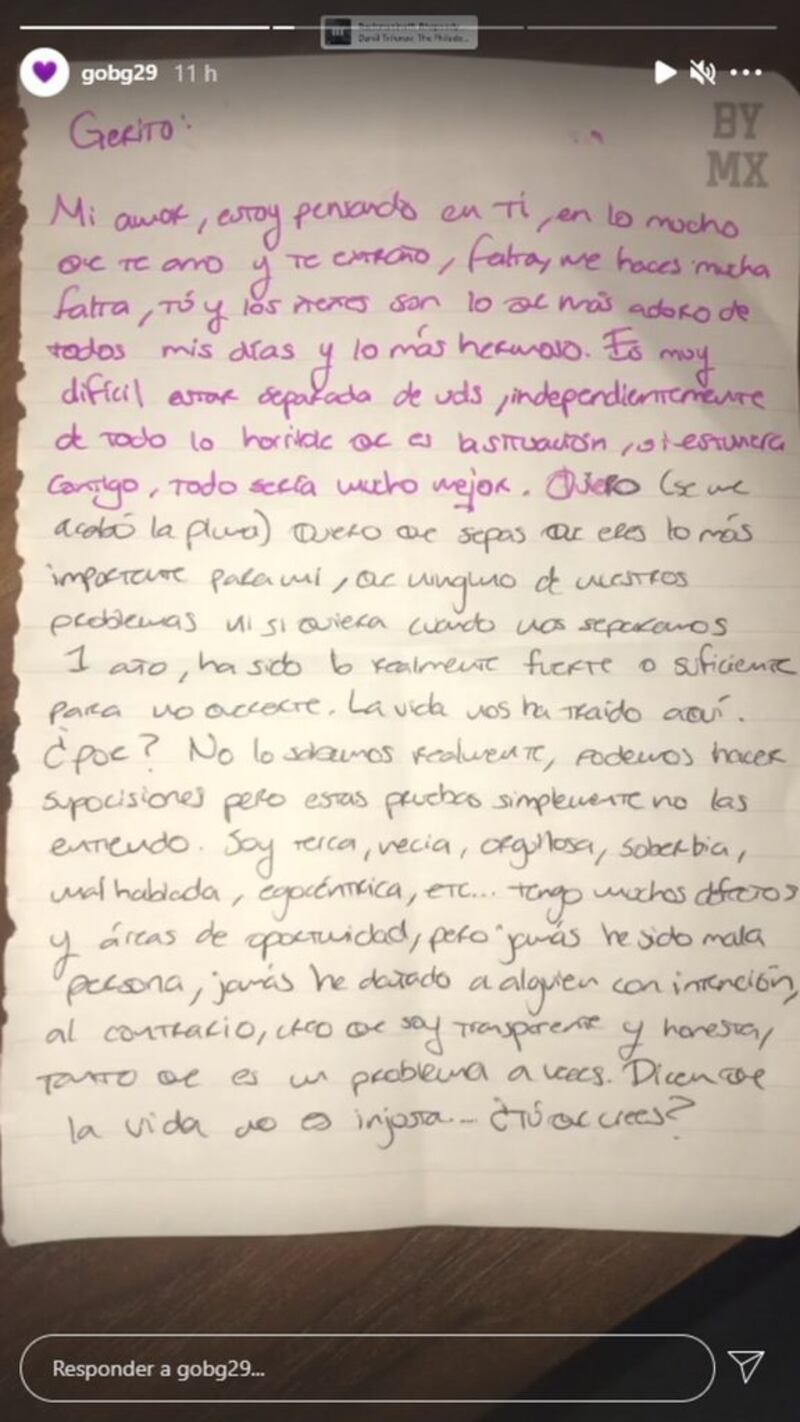 Rachmaninoff: Rhapsody...
Daniil Trifonov, The Philade...
gobg29 11 h
BY
MX
Gerito:
Mi amor, estoy pensando en Ti, en lo mucho
qe te amo y te extraño, falta, me haces mucha
falta, tú y los nenes son lo qe más adoro de
todos mis días y lo más hermoso. Es muy
difícil estar separada de uds, independientemente
de todo lo horrible qe es la situación, si estuviera
contigo, todo sería mucho mejor. Quiero (se me
acabó la pluma) Quiero qe sepas qe eres lo más
importante para mí, qe ninguno de nuestros
problemas ni si quiera cuando nos separamos
1 año, ha sido lo realmente fuerte o suficiente
para no accerte. La vida nos ha traído aquí.
¿poe? No lo sabemos realmente, podemos hacer
supocisiones pero estas pruebas simplemente no las
entiendo. Soy terca, necia, orgullosa, soberbia,
mal hablada, egocéntrica, etc... tengo muchos defectos
y áreas de oportunidad, pero jamás he sido mala
persona, jamás he dañado a alguien con intención,
al contrario, creo qe soy transparente y honesta,
tanto qe es un problema a veces. Dicen qe
la vida no es injusta... ¿Tú qe crees?
Responder a gobg29...